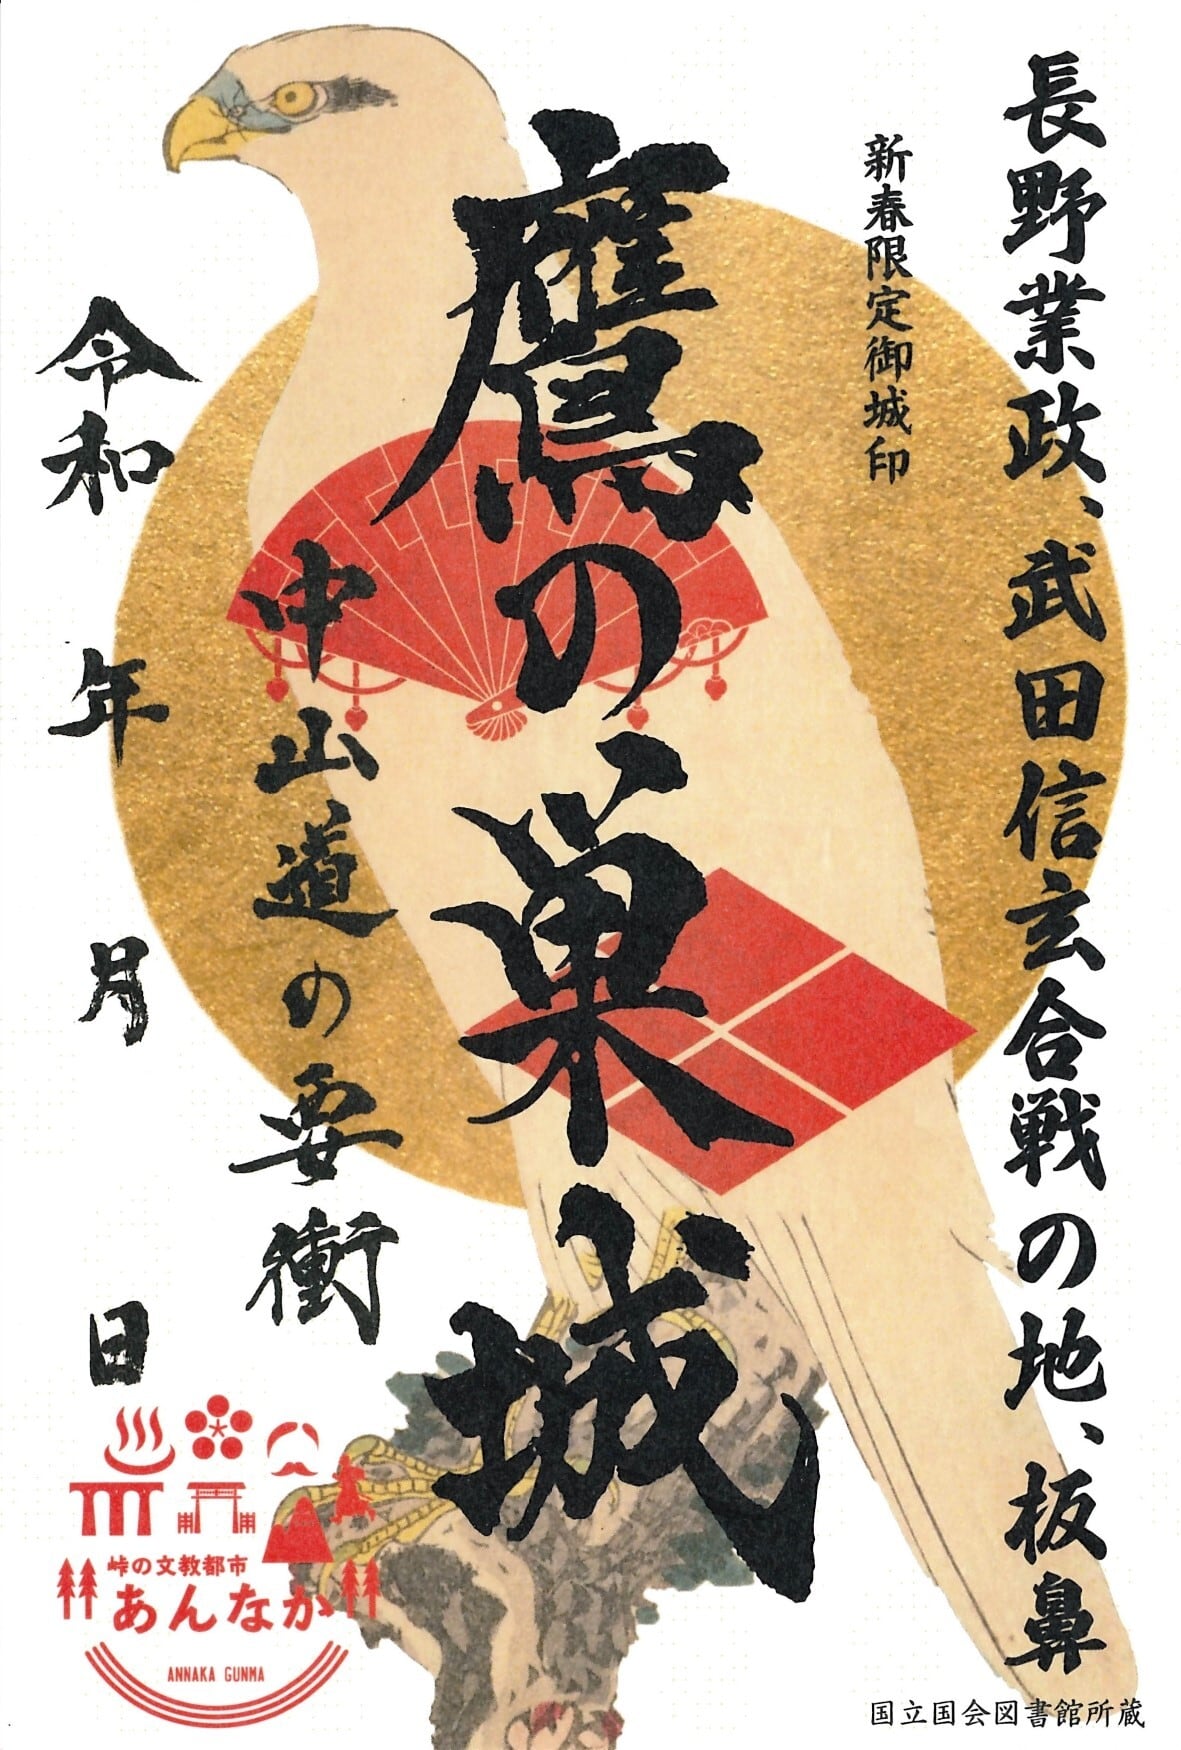 長野業政、武田信玄合戦の地、板鼻
新春限定御城印
鷹の巣城
中山道の要衝
令和 年 月 日
峠の文教都市
あんなか
ANNAKA GUNMA
国立国会図書館所蔵